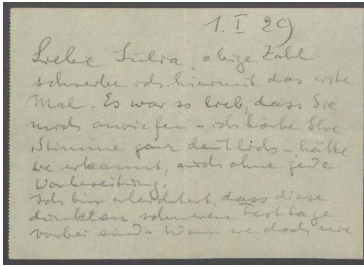 1. I 29
Liebe Julia, obige Zahl
schreibe ich hiermit das erste
Mal. Es war so lieb, dass Sie
mich anriefen – ich hörte Ihre
Stimme ganz deutlich – hätte
sie erkannt, auch ohne jede
Vorbereitung.
Ich bin erleichtert, dass diese
dunklen schweren Festtage
vorbei sind – Wenn sie doch nie